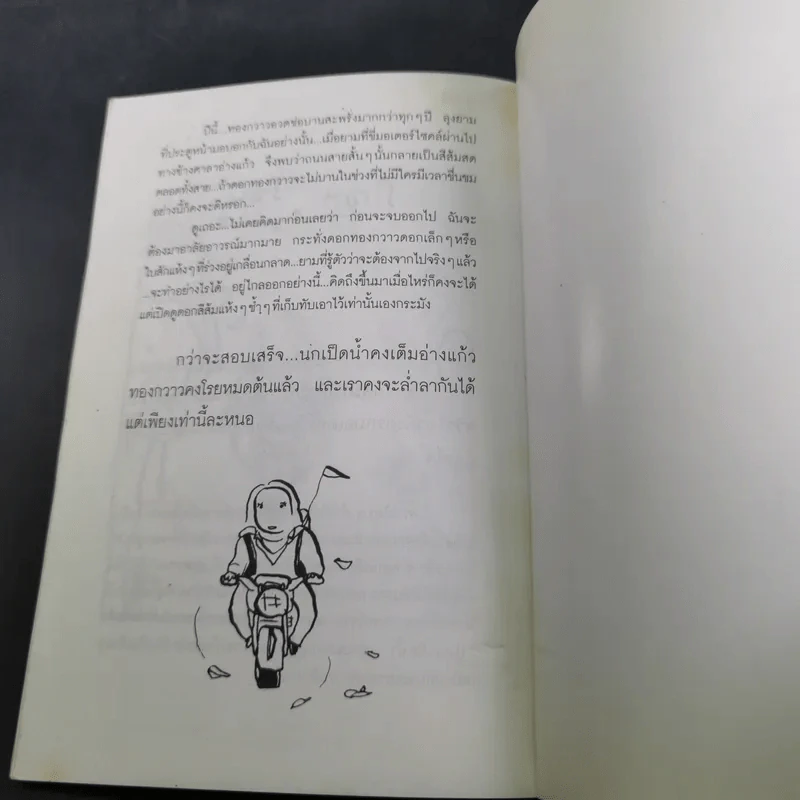 ปีนี้...ทองกวาวอวดช่อบานสะพรั่งมากกว่าทุกๆปี ลุงยาม
ที่ประตูหน้ามอบอกกับฉันอย่างนั้น...เมื่อยามที่ขี่มอเตอร์ไซคล์ผ่านไป
ทางข้างศาลาอ่างแก้ว จึงพบว่าถนนสายสั้นๆนั้นกลายเป็นสีส้มสด
ตลอดทั้งสาย...ถ้าดอกทองกวาวจะไม่บานในช่วงที่ไม่มีใครมีเวลาชื่นชม
อย่างนี้ก็คงจะดีหรอก...
ดูเถอะ...ไม่เคยคิดมาก่อนเลยว่า ก่อนจะจบออกไป ฉันจะ
ต้องมาอาลัยอาวรณ์มากมาย กระทั่งดอกทองกวาวดอกเล็กๆหรือ
ใบสักแห้งๆที่ร่วงอยู่เกลื่อนกลาด...ยามที่รู้ตัวว่าจะต้องจากไปจริงๆแล้ว
...จะทำอย่างไรได้ อยู่ไกลออกอย่างนี้...คิดถึงขึ้นมาเมื่อไหร่ก็คงจะได้
แต่เปิดดูดอกสีส้มแห้งๆช้ำๆที่เก็บทับเอาไว้เท่านั้นเองกระมัง
กว่าจะสอบเสร็จ...นกเป็ดน้ำคงเต็มอ่างแก้ว
ทองกวาวคงโรยหมดต้นแล้ว และเราคงจะล่ำลากันได้
แต่เพียงเท่านี้ละหนอ